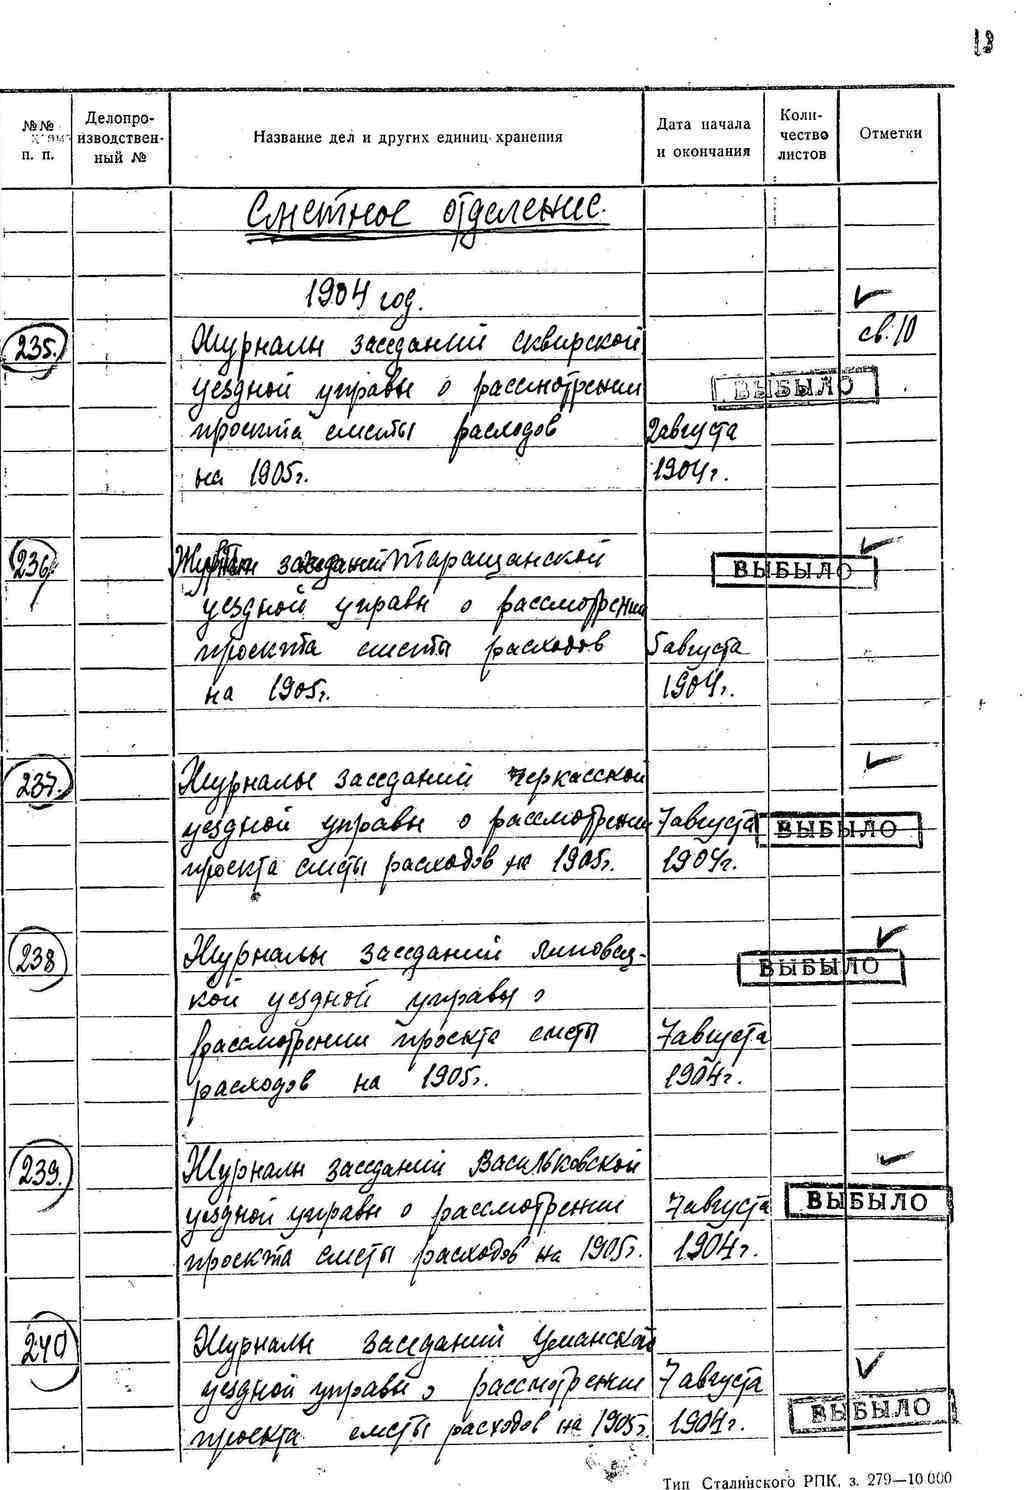 18
№№ п. п.
Делопро-
изводствен-
ный №
Название дел и других единиц хранения
Дата начала
и окончания
Коли-
чество
листов
Отметки
Сметное отделение.
1904 год.
235. Журналы заседаний Сквирской св. 10
уездной управы о рассмотрении ВЫБЫЛО
проекта сметы расходов 2 августа
на 1905 г. 1904 г.
236 Журналы заседаний Таращанской ВЫБЫЛО
уездной управы о рассмотрении
проекта сметы расходов 5 августа
на 1905 г. 1904 г.
237. Журналы заседаний Черкасской
уездной управы о рассмотрении 7 августа ВЫБЫЛО
проекта сметы расходов на 1905 г. 1904 г.
238 Журналы заседаний Липовец- ВЫБЫЛО
кой уездной управы о
рассмотрении проекта сметы 7 августа
расходов на 1905 г. 1904 г.
239. Журналы заседаний Васильковской
уездной управы о рассмотрении 7 августа ВЫБЫЛО
проекта сметы расходов на 1905 г. 1904 г.
240 Журналы заседаний Уманской
уездной управы о рассмотрении 7 августа
проекта сметы расходов на 1905 г. 1904 г. ВЫБЫЛО
Тип Сталинского РПК, з. 279—10 000